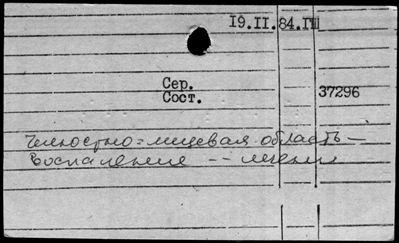 19.II.84.III
Сер.
Сост.
37296
Челюстно=лицевая область –
Воспаление -- лечение